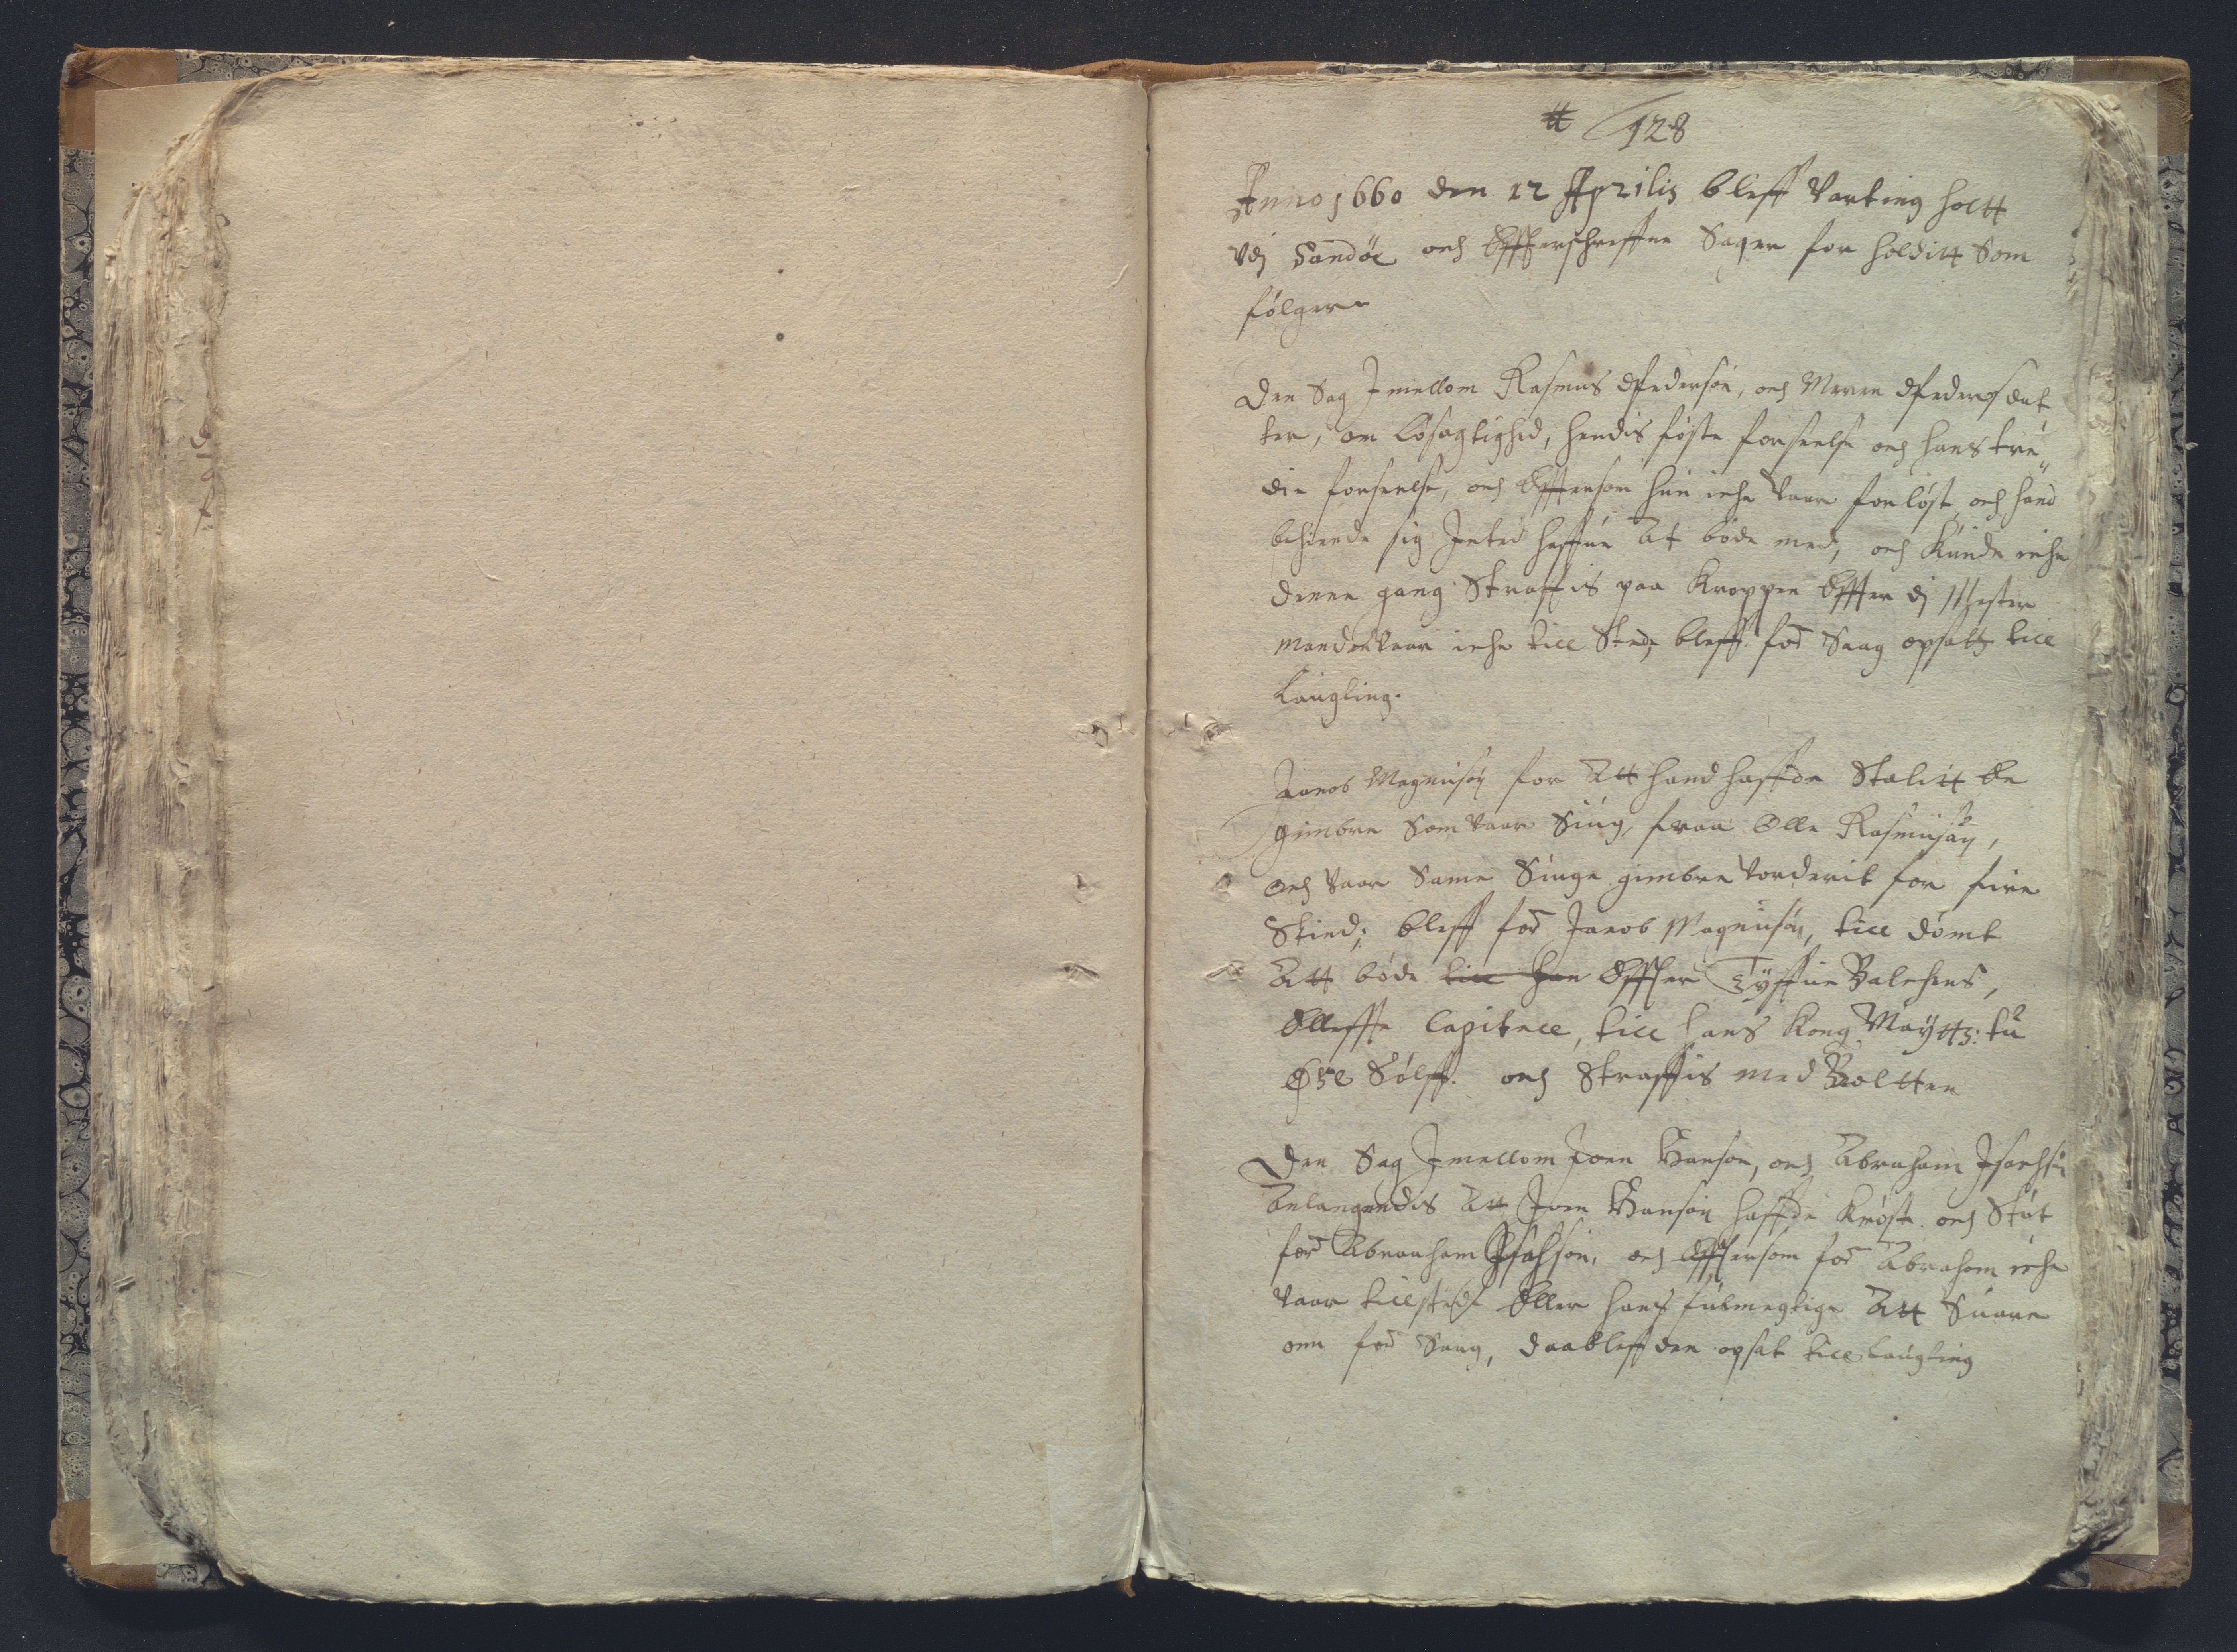 128
Anno 1660 den 12 Aprilis bleff Varting holtt
Vdj Sandøe och Effterschreffne Sager for holditt Som
følger
Den Sag Imellom Rasmus Pedersøn, och Maren Peders dat
ter, om løsagtighed, hendis føste forseelse och hans tre„
die forseelse, och Effterson hun iche Vaar forløst och hand
behiende sig Inted haffue At bøde med, och Kunde iche
denne gang Straffis paa Kroppen Effter dj Mester
manden Vaar iche till Stede bleff for Saag opsatt till
Laugting.
Jacob Magnusøn for Att hand haffde Stalitt En
gimbre Som Vaar Siug, fraa Olle Rasmusøn,
och Vaar Same Siuge gimbre Vorderit for fire
Skind; bleff for Jacob Magnusøn, till dømt
Att bøde till han Effter Tyffue Balchens,
Elleffte Capitell, till hans Kong Maytts: tu
Ører Sølff. och Straffis med Boltten
Den Sag Imellom Joen Hansøn, och Abraham Isachsøn
Anlangendis Att Joen Hansøn haffde Krøst och Støt
for Abraham Isachsøn, och Effterson for Abraham iche
Vaar tillstede Eller hans fulmegtige Att Suare
om for Saag, daa bleff den opsat till Laugting